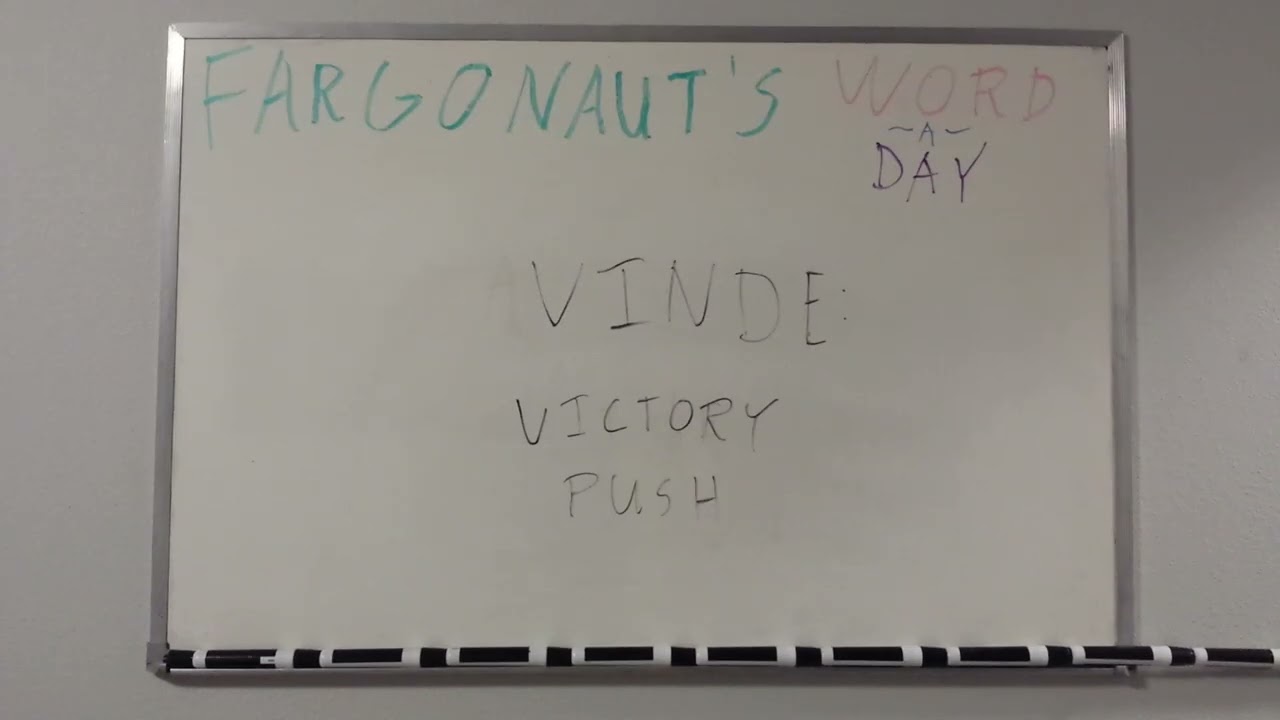 FARGONAUT'S WORD
~A~
DAY
VINDE:
VICTORY
PUSH